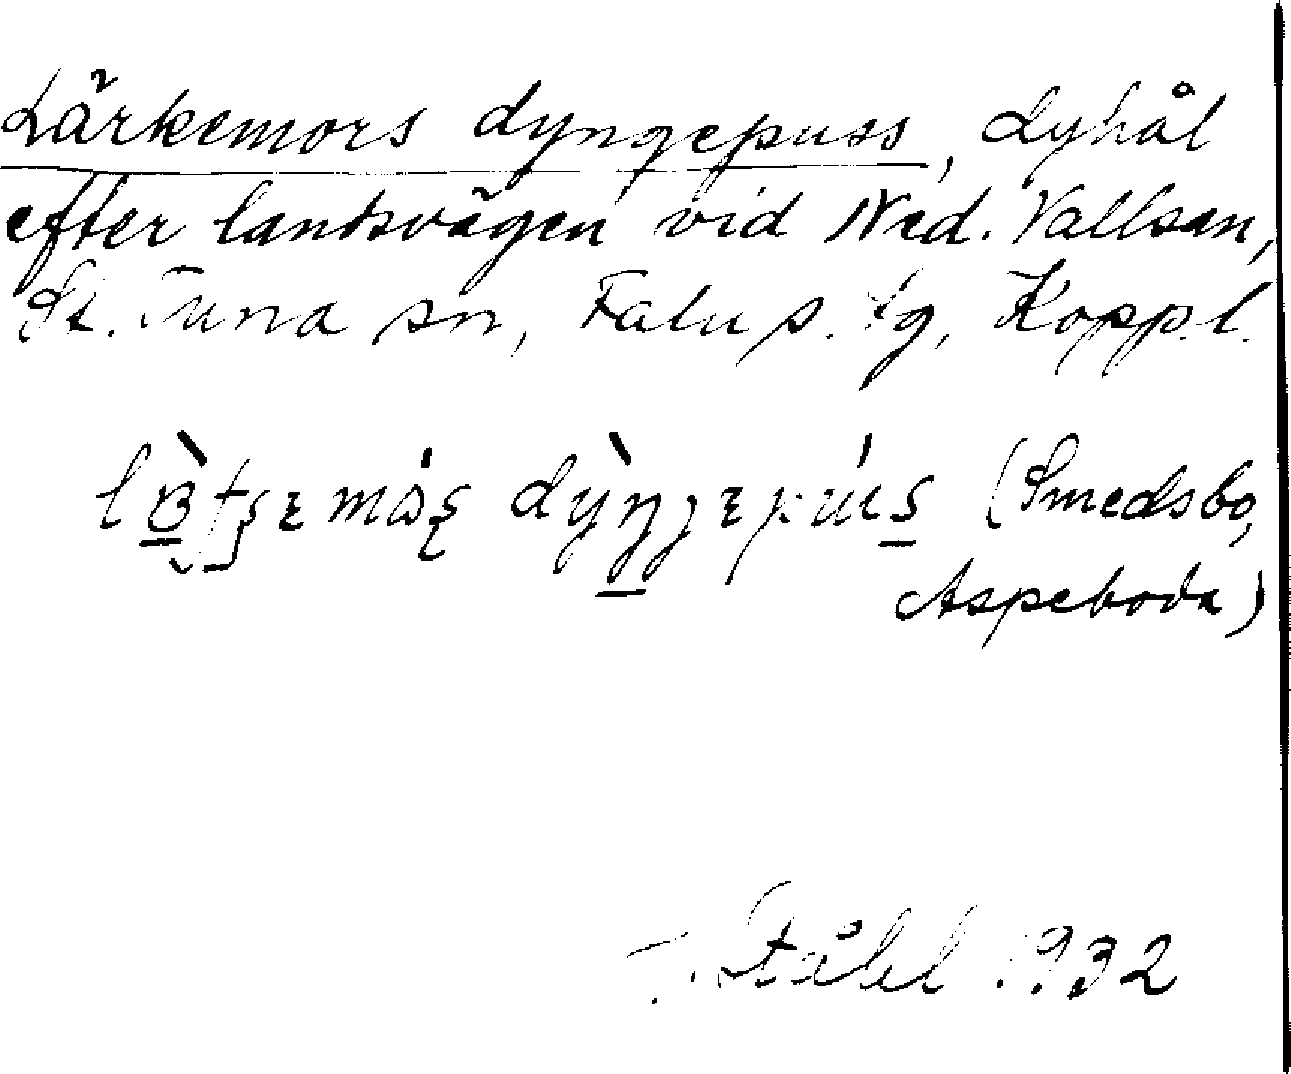 Lärkemors dyngepuss, dyhål
efter landsvägen vid Ned. Vallsan,
St. Tuna sn, Falu s. tg, Koppl.
(Smedsbo,
Aspeboda)
Ståhl 1932